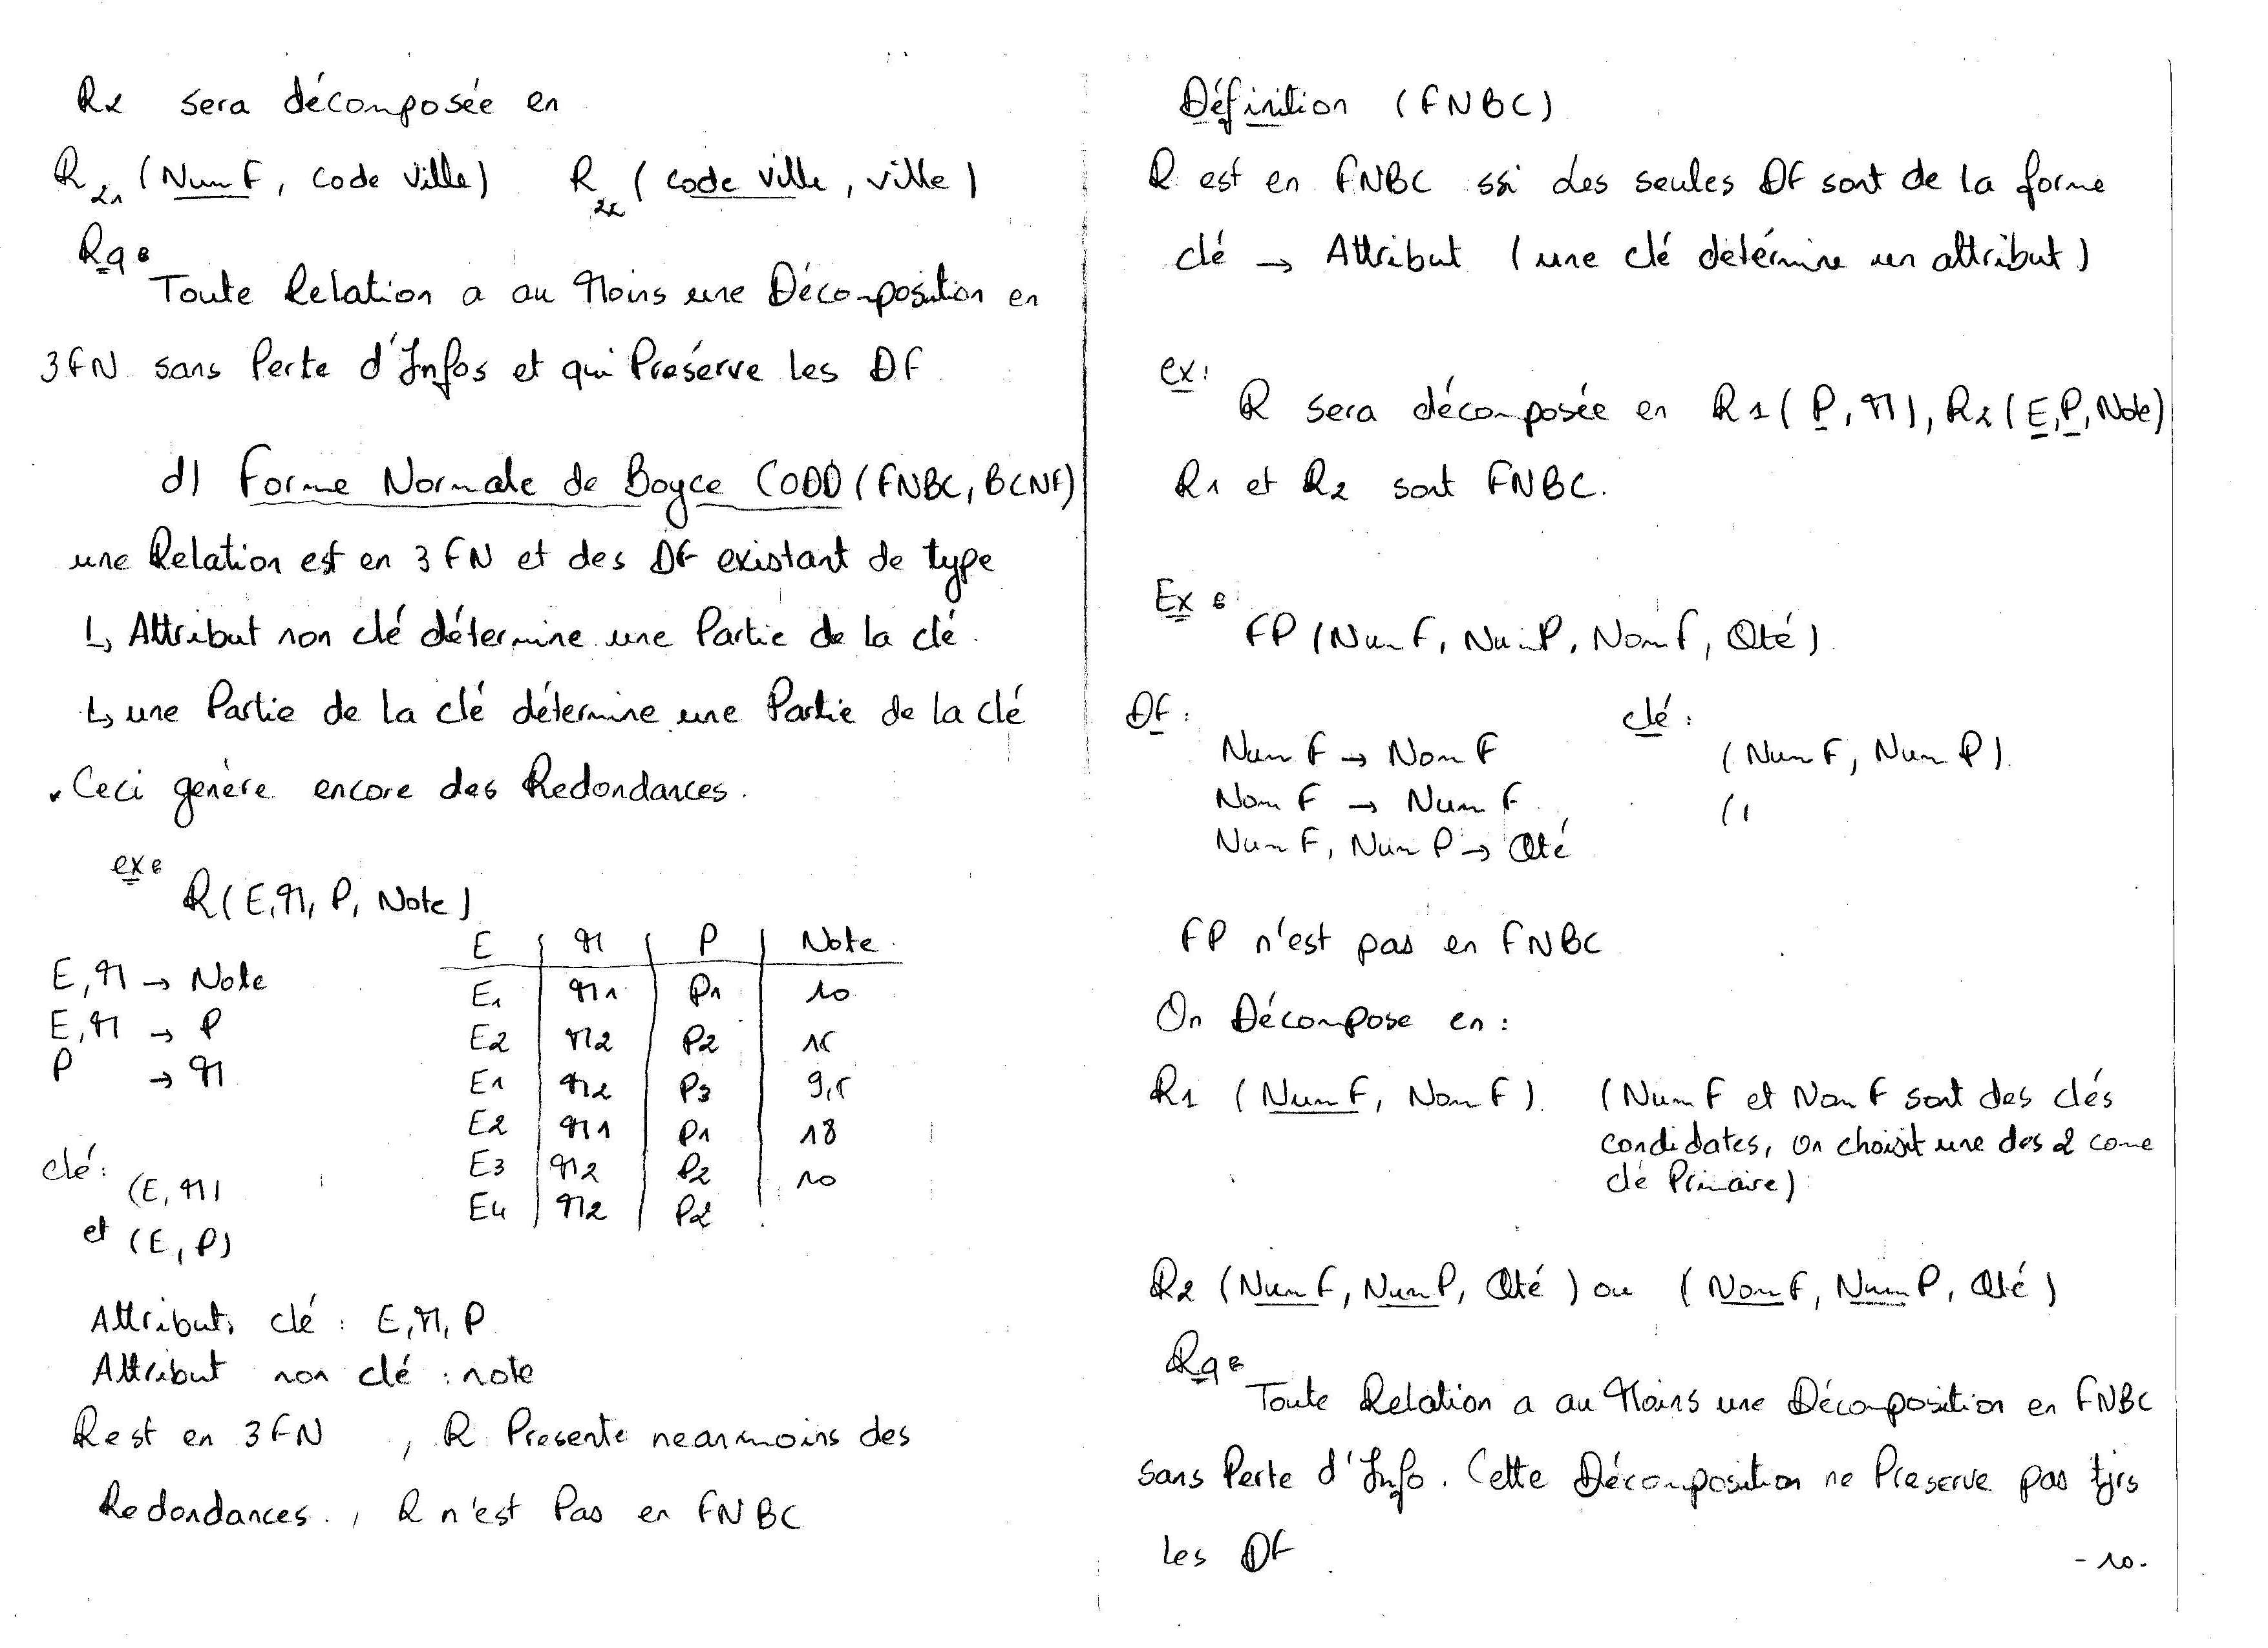 R2 sera décomposée en
R21 (Num F, Code Ville) R22 (Code Ville, Ville)
Rq:
Toute Relation a au Moins une Décomposition en
3FN sans Perte d'Infos et qui Préserve les DF
d) Forme Normale de Boyce CODD (FNBC, BCNF)
une Relation est en 3FN et des DF existant de type
↳ Attribut non clé détermine une Partie de la clé.
↳ une Partie de la clé détermine une Partie de la clé
. Ceci genère encore des Redondances.
ex:
R(E, M, P, Note)
E, M → Note
E, M → P
P → M
E | M | P | Note
E1 | M1 | P1 | 10
E2 | M2 | P2 | 15
E1 | M2 | P3 | 9,5
E2 | M1 | P1 | 18
E3 | M2 | P2 | 10
E4 | M2 | P2
clé:
(E, M)
et (E, P)
Attributs clé : E, M, P
Attribut non clé : note
R est en 3FN , R Presente neanmoins des
Redondances. , R n'est Pas en FNBC
Définition (FNBC)
R est en FNBC ssi des seules DF sont de la forme
clé → Attribut (une clé detérmine un attribut)
ex:
R sera décomposée en R1(P, M), R2(E, P, Note)
R1 et R2 sont FNBC.
Ex:
FP (Num F, Num P, Nom F, Qté)
DF: clé:
Num F → Nom F (Num F, Num P).
Nom F → Num F ((
Num F, Num P → Qté
FP n'est pas en FNBC
On Décompose en:
R1 (Num F, Nom F). (Num F et Nom F sont des clés
condidates, on choisit une des 2 come
clé Primaire)
R2 (Num F, Num P, Qté) ou (Nom F, Num P, Qté)
Rq:
Toute Relation a au Moins une Décomposition en FNBC
sans Perte d'Info. Cette Décomposition ne Preserve pas tjrs
les DF.
-10-